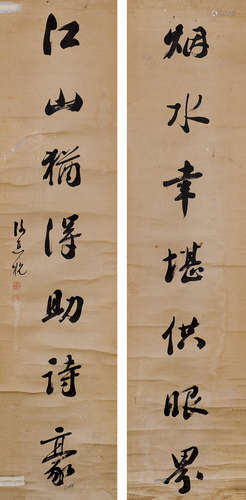 烟水幸堪供眼界
江山犹得助诗豪